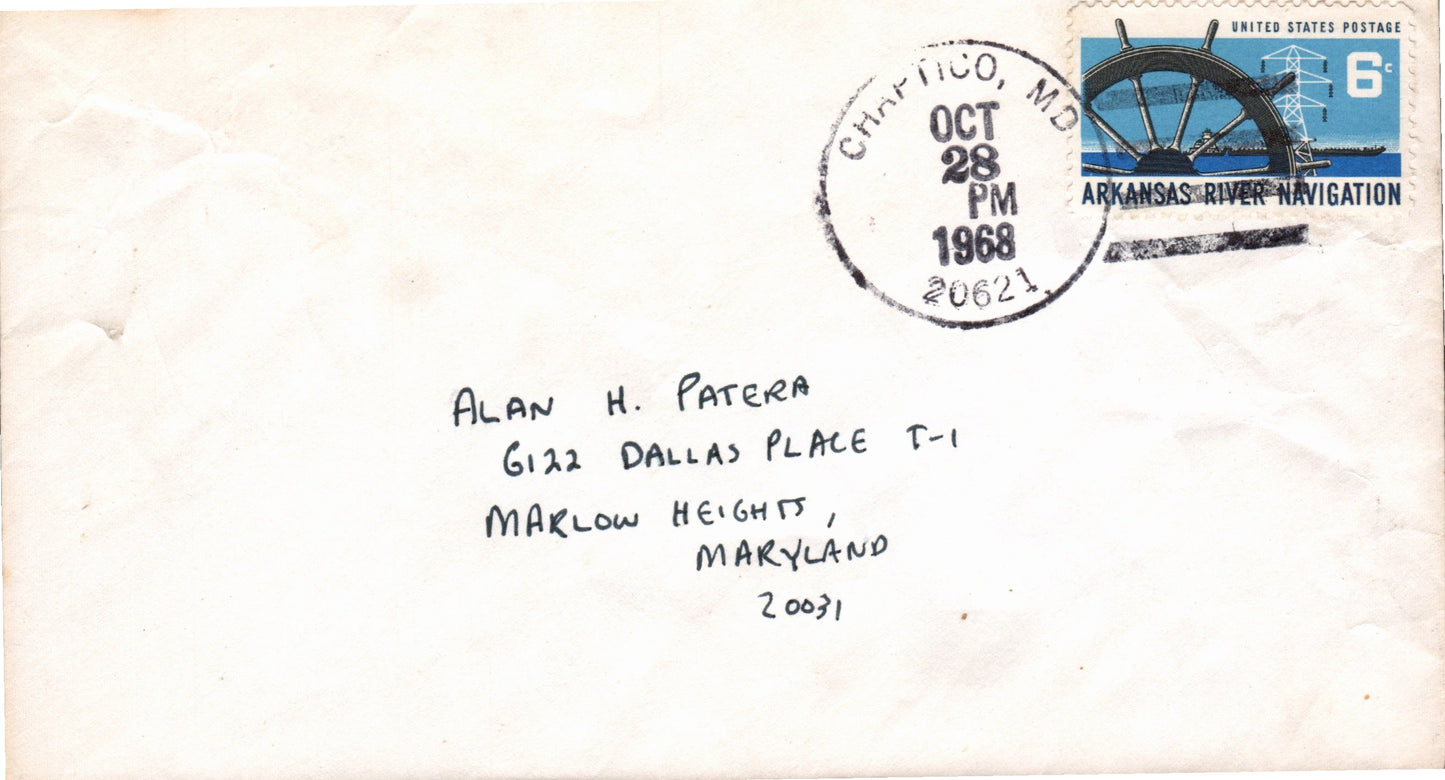 UNITED STATES POSTAGE
6c
ARKANSAS RIVER NAVIGATION
CHAPTICO, MD
OCT
28
PM
1968
20621
ALAN H. PATERA
6122 DALLAS PLACE T-1
MARLOW HEIGHTS,
MARYLAND
20031